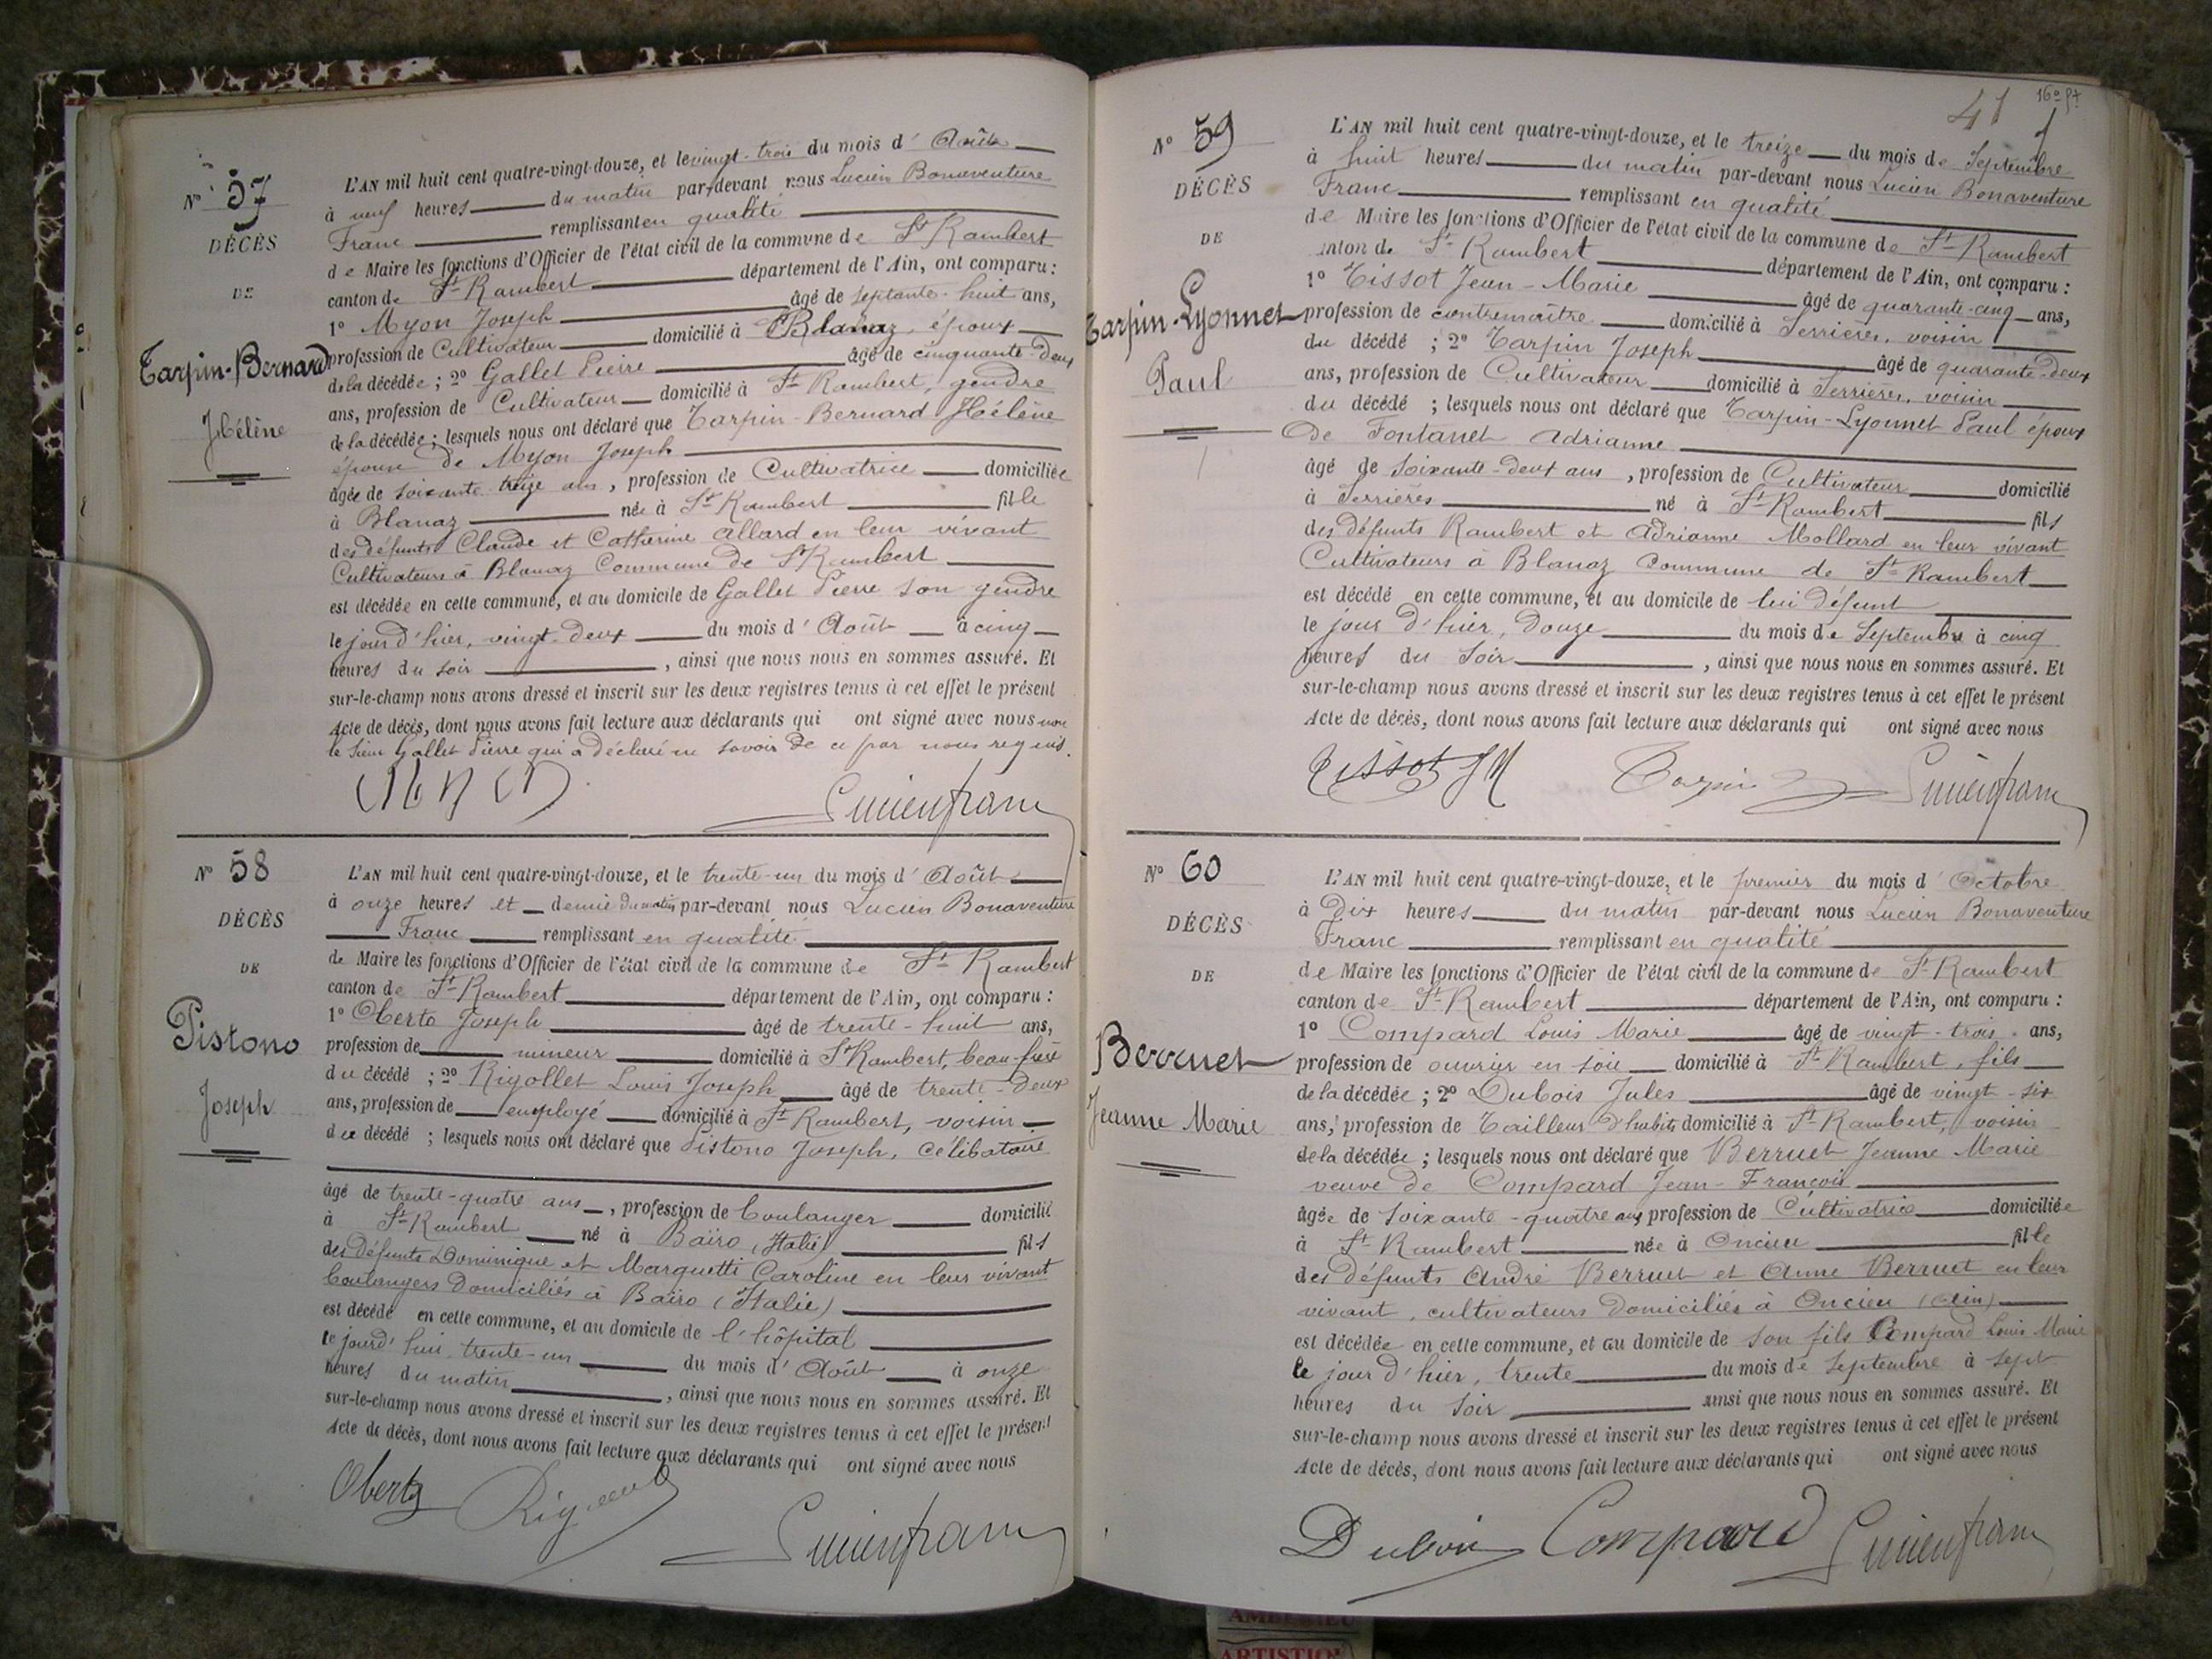 N° 57
DÉCÈS
DE
Tarpin-Bernard
Hélène
L'AN mil huit cent quatre-vingt-douze, et le vingt-trois du mois d'Août
à neuf heures du matin par-devant nous Lucien Bonaventure
Franc remplissant en qualité
de Maire les fonctions d'Officier de l'état civil de la commune de St Rambert
canton de St Rambert département de l'Ain, ont comparu :
1° Myon Joseph âgé de septante-huit ans,
profession de Cultivateur domicilié à Blanaz, époux
de la décédée ; 2° Gallet Pierre âgé de cinquante-deux
ans, profession de Cultivateur domicilié à St Rambert, gendre
de la décédée ; lesquels nous ont déclaré que Tarpin-Bernard Hélène
épouse de Myon Joseph
âgée de soixante treize ans, profession de Cultivatrice domiciliée
à Blanaz née à St Rambert fille
des défunts Claude et Catherine Allard en leur vivant
Cultivateurs à Blanaz Commune de St Rambert
est décédée en cette commune, et au domicile de Gallet Pierre son gendre
le jour d'hier, vingt-deux du mois d'Août à cinq
heures du soir, ainsi que nous nous en sommes assuré. Et
sur-le-champ nous avons dressé et inscrit sur les deux registres tenus à cet effet le présent
Acte de décès, dont nous avons fait lecture aux déclarants qui ont signé avec nous non
le sieur Gallet Pierre qui a déclaré ne savoir de ce par nous requis.
Lucien franc
N° 58
DÉCÈS
DE
Pistono
Joseph
L'AN mil huit cent quatre-vingt-douze, et le trente-un du mois d'Août
à onze heures et demie du matin par-devant nous Lucien Bonaventure
Franc remplissant en qualité
de Maire les fonctions d'Officier de l'état civil de la commune de St Rambert
canton de St Rambert département de l'Ain, ont comparu :
1° Oberto Joseph âgé de trente-huit ans,
profession de mineur domicilié à St Rambert, beau-frère
du décédé ; 2° Rigollet Louis Joseph âgé de trente-deux
ans, profession de employé domicilié à St Rambert, voisin
du décédé ; lesquels nous ont déclaré que Pistono Joseph, célibataire
âgé de trente-quatre ans, profession de boulanger domicilié
à St Rambert né à Bairo (Italie) fils
des défunts Dominique et Marquetti Caroline en leur vivant
boulangers domiciliés à Bairo (Italie)
est décédé en cette commune, et au domicile de l'hôpital
le jourd'hui trente-un du mois d'Août à onze
heures du matin, ainsi que nous nous en sommes assuré. Et
sur-le-champ nous avons dressé et inscrit sur les deux registres tenus à cet effet le présent
Acte de décès, dont nous avons fait lecture aux déclarants qui ont signé avec nous
Oberto Lucien franc
41 16e ft
N° 59
DÉCÈS
DE
Tarpin-Lyonnet
Paul
L'AN mil huit cent quatre-vingt-douze, et le treize du mois de Septembre
à huit heures du matin par-devant nous Lucien Bonaventure
Franc remplissant en qualité
de Maire les fonctions d'Officier de l'état civil de la commune de St Rambert
anton de St Rambert département de l'Ain, ont comparu :
1° Tissot Jean-Marie âgé de quarante-cinq ans,
profession de contremaître domicilié à Serrières, voisin
du décédé ; 2° Tarpin Joseph âgé de quarante-deux
ans, profession de Cultivateur domicilié à Serrières, voisin
du décédé ; lesquels nous ont déclaré que Tarpin-Lyonnet Paul époux
de Fontanet Adrianne
âgé de soixante-deux ans, profession de Cultivateur domicilié
à Serrières né à St Rambert fils
des défunts Rambert et Adrianne Mollard en leur vivant
Cultivateurs à Blanaz Commune de St Rambert
est décédé en cette commune, et au domicile de lui défunt
le jour d'hier, douze du mois de Septembre à cinq
heures du soir, ainsi que nous nous en sommes assuré. Et
sur-le-champ nous avons dressé et inscrit sur les deux registres tenus à cet effet le présent
Acte de décès, dont nous avons fait lecture aux déclarants qui ont signé avec nous
Tissot JM Tarpin Lucien franc
N° 60
DÉCÈS
DE
Berruet
Jeanne Marie
L'AN mil huit cent quatre-vingt-douze, et le premier du mois d'Octobre
à dix heures du matin par-devant nous Lucien Bonaventure
Franc remplissant en qualité
de Maire les fonctions d'Officier de l'état civil de la commune de St Rambert
canton de St Rambert département de l'Ain, ont comparu :
1° Compard Louis Marie âgé de vingt-trois ans,
profession de ouvrier en soie domicilié à St Rambert, fils
de la décédée ; 2° Dubois Jules âgé de vingt-six
ans, profession de Tailleur d'habits domicilié à St Rambert, voisin
de la décédée ; lesquels nous ont déclaré que Berruet Jeanne Marie
veuve de Compard Jean-François
âgée de soixante-quatre ans profession de Cultivatrice domiciliée
à St Rambert née à Oncieu fille
des défunts André Berruet et Anne Berruet en leur
vivant, cultivateurs domiciliés à Oncieu (Ain)
est décédée en cette commune, et au domicile de son fils Compard Louis Marie
le jour d'hier, trente du mois de Septembre à sept
heures du soir ainsi que nous nous en sommes assuré. Et
sur-le-champ nous avons dressé et inscrit sur les deux registres tenus à cet effet le présent
Acte de décès, dont nous avons fait lecture aux déclarants qui ont signé avec nous
Dubois Compard Lucien franc
ARTISTIQU